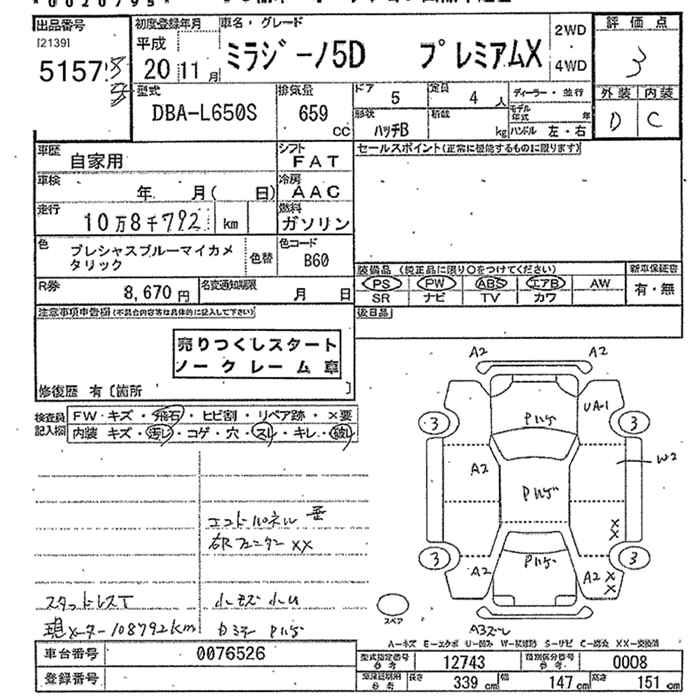 *0020795*
出品番号 初度登録年月 車名・グレード 2WD 評価点
[2139] 平成 20 11月 ミラジーノ5D プレミアムX 4WD 3
5157
型式 排気量 ドア 定員 ディーラー・並行 外装 内装
DBA-L650S 659 CC 5 4人 モデル年式 年 D C
形状 積載
ハッチB kg ハンドル 左・右
車歴 シフト セールスポイント(正常に機能するものに限ります)
自家用 FAT
車検 冷房
年 月( 日) AAC
走行 燃料
10万8千792 km ガソリン
色 色替 色コード
プレシャスブルーマイカメタリック B60
装備品 (純正品に限り○をつけてください) 新車保証書
R券 8,670円 名変通知期限 月 日 PS PW ABS エアB AW 有・無
SR ナビ TV カワ
注意事項申告欄(不具合内容等は具体的に記入して下さい) 後日品
売りつくしスタート
ノークレーム 車
修復歴 有〔箇所 〕
検査員記入欄 FW キズ・飛石・ヒビ割・リペア跡・×要
内装 キズ・汚レ・コゲ・穴・スレ・キレ・破レ
A2 A2
Pハゲ UA-1
3 3
A2 W2
Pハゲ
エンドパネル 歪
右Rフェンダー XX XX
3 3
A2 Pハゲ A2 XX
スタッドレスT 小キズ 小凹
現メーター108792km カミナー Pハゲ スペア
A3スレ
A-キズ E-エクボ U-凹み W-板補跡 S-サビ C-腐食 XX-交換済
車台番号 0076526 型式指定番号 参考 12743 類別区分番号 参考 0008
登録番号 車検証記載 参考 長さ 339cm 幅 147cm 高さ 151cm